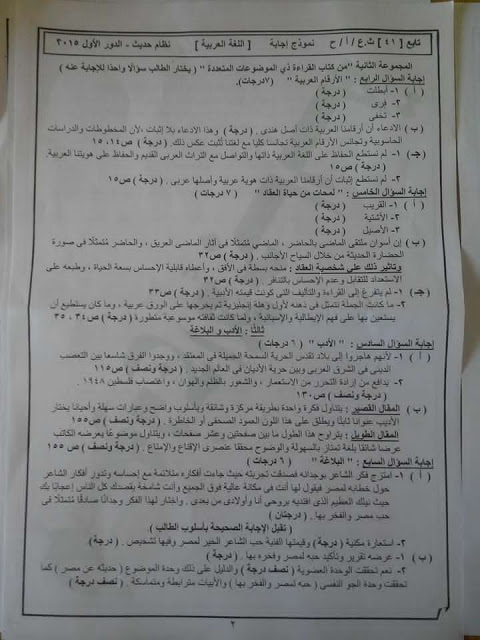 تابع [ ٤١ ] ث.ع / أ / ح نموذج إجابة [ اللغة العربية ] نظام حديث - الدور الأول ٢٠١٥
المجموعة الثانية "من كتاب القراءة ذي الموضوعات المتعددة" ( يختار الطالب سؤالًا واحدًا للإجابة عنه )
إجابة السؤال الرابع : " الأرقام العربية " ( ٧درجات)
( أ ) ١- أبطلت ( درجة )
٢- قرى ( درجة )
٣- تخفى ( درجة )
(ب) الادعاء أن أرقامنا العربية ذات أصل هندى . ( درجة ) وهذا الادعاء بلا إثبات ،لأن المخطوطات والدراسات
الحاسوبية وتجانس الأرقام العربية تجانسا كليا مع لغتنا تُثبت عكس ذلك . ( درجة ) ص١٤، ١٥
(جـ) ١- لم نستطع الحفاظ على اللغة العربية ذاتها والتواصل مع التراث العربى القديم والحفاظ على هويتنا العربية.
( درجة ) ص١٥
٢- لم نستطع إثبات أن أرقامنا العربية ذات هوية عربية وأصلها عربى . ( درجة ) ص١٥
إجابة السؤال الخامس : " لمحات من حياة العقاد " ( ٧ درجات )
( أ ) ١- القريب ( درجة )
٢- الأشتية ( درجة )
٣- الأصيل ( درجة )
(ب) إن أسوان ملتقى الماضى بالحاضر ، الماضي مُتمثلًا فى آثار الماضى العريق ، والحاضر مُتمثلًا فى صورة
الحضارة الحديثة من خلال السياح الأجانب . ( درجة ) ص٣٢
وتأثير ذلك على شخصية العقاد : منحه بسطة فى الأفق ، وأعطاه قابلية الإحساس بسعة الحياة ، وطبعه على
الاستعداد للتقابل وعدم الإحساس بالتنافر . ( درجة ) ص٣٢
(جـ) ١- لم يتفرغ إلى القراءة والتأليف التى كونت قيمته الأدبية . ( درجة ) ص٣٣
٢- ما كانت الجملة تتمثل فى ذهنه لأول وهلة إنجليزية ثم يخرجها على الورق عربية ، وما كان يستطيع أن
يستعين بها على فهم الإيطالية والإسبانية ، ولما كانت ثقافته موسوعية متطورة ( درجة ) ص٣٤ ، ٣٥
ثالثًا : الأدب و البلاغة
إجابة السؤال السادس : " الأدب " ( ٦ درجات )
( أ ) ١- لأنهم هاجروا إلى بلاد تقدس الحرية السمحة الجميلة فى المعتقد ، ووجدوا الفرق شاسعا بين التعصب
الدينى فى الشرق العربى وبين حرية الأديان فى العالم الجديد . ( درجة ونصف ) ص١١٥
٢- بدافع من إرادة التحرر من الاستعمار ، والشعور بالظلم والهوان ، واغتصاب فلسطين ١٩٤٨ .
( درجة ونصف ) ص١٣٠
(ب) المقال القصير : يتناول فكرة واحدة بطريقة مركزة وشائقة وبأسلوب واضح وعبارات سهلة وأحيانا يختار
الأديب عنوانا ثابتًا ويطلق على هذا اللون العمود الصحفى أو الخاطرة . ( درجة ونصف ) ص١٥٥
المقال الطويل : يتراوح هذا الطول ما بين صفحتين وعشر صفحات ، ويتناول موضوعًا يعرضه الكاتب
عرضا شائقا بلغة تمتاز بالسهولة والوضوح محققا عنصرى الإقناع والإمتاع . ( درجة ونصف ) ص١٥٥
إجابة السؤال السابع : " البلاغة " ( ٦ درجات )
( أ ) ١- امتزج فكر الشاعر بوجدانه فصدقت تجربته حيث جاءت أفكاره متلائمة مع إحساسه وتدور أفكار الشاعر
حول خطابه لمصر فيقول لها أنت فى مكانة عالية فوق الجميع وأنت شامخة يقصدك كل الناس إعجابًا بك
حيث نيلك العظيم الذى أفتديه بروحى أنا وأولادى من بعدى . واختار لهذا الفكر وجدانًا صادقًا مُتمثلًا فى
حب مصر والفخر بها . ( درجتان )
( تقبل الإجابة الصحيحة بأسلوب الطالب )
٢- استعارة مكنية ( درجة ) وقيمتها الفنية حب الشاعر الخير لمصر وفيها تشخيص . ( درجة )
(ب) ١- غرضه تقرير وتأكيد حبه لمصر وفخره بها . ( درجة )
٢- نعم تحققت الوحدة العضوية ( نصف درجة ) والدليل على ذلك وحدة الموضوع ( حديثه عن مصر ) كما
تحققت وحدة الجو النفسي (حبه لمصر والفخر بها ) والأبيات مترابطة ومتماسكة . ( نصف درجة )
٢